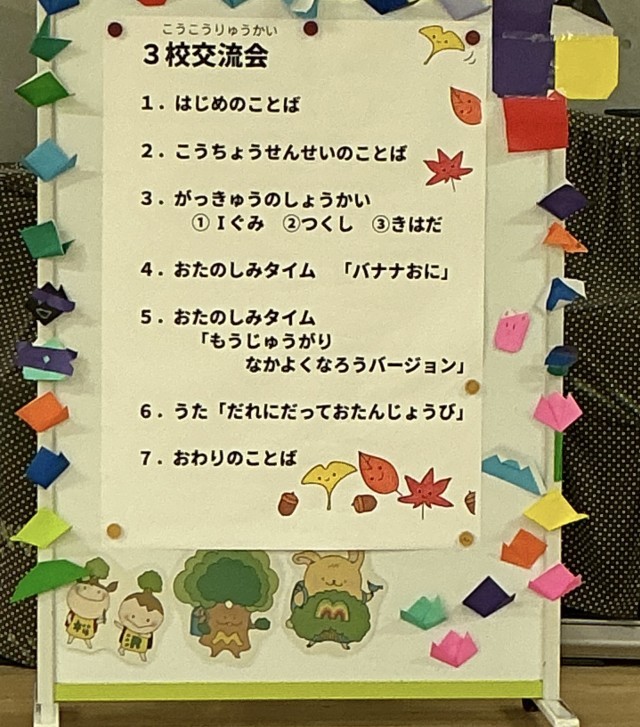 こうこうりゅうかい
３校交流会
１．はじめのことば
２．こうちょうせんせいのことば
３．がっきゅうのしょうかい
①Ｉぐみ　②つくし　③きはだ
４．おたのしみタイム　「バナナおに」
５．おたのしみタイム
「もうじゅうがり
なかよくなろうバージョン」
６．うた「だれにだっておたんじょうび」
７．おわりのことば